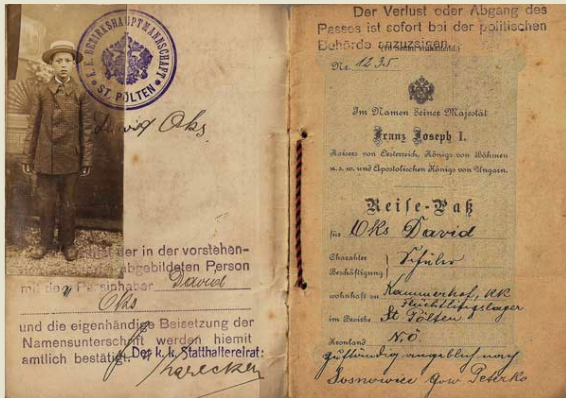 K. K. BEZIRKSHAUPTMANNSCHAFT
ST. PÖLTEN
Oks
der in der vorstehen-
abgebildeten Person
mit dem Passinhaber David
Oks
und die eigenhändige Beisetzung der
Namensunterschrift werden hiemit
amtlich bestätigt. Der k. k. Statthaltereirat:
Der Verlust oder Abgang des
Passes ist sofort bei der politischen
Behörde anzuzeigen.
Nr. 1235
Im Namen Seiner Majestät
Franz Joseph I.
Kaisers von Oesterreich, Königs von Böhmen
u. s. w. und Apostolischen Königs von Ungarn.
Reise-Paß
für Oks David
Charakter
Beschäftigung
Schüler
wohnhaft zu Kammerhof, KK
Flüchtlingslager
im Bezirke St Pölten
Kronland N.Ö.
zuständig angeblich nach
Sosnowice Gow Petrko